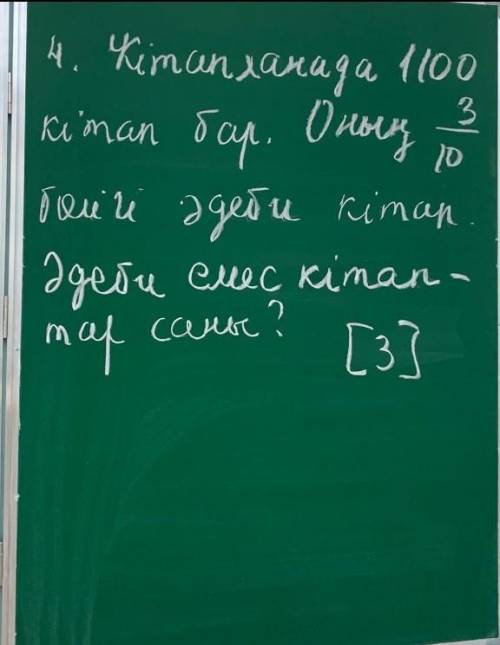 4. Кітапханада 1100
кітап бар. Оның 3/10
бөлігі әдеби кітап.
Әдеби емес кітап-
тар саны? [3]